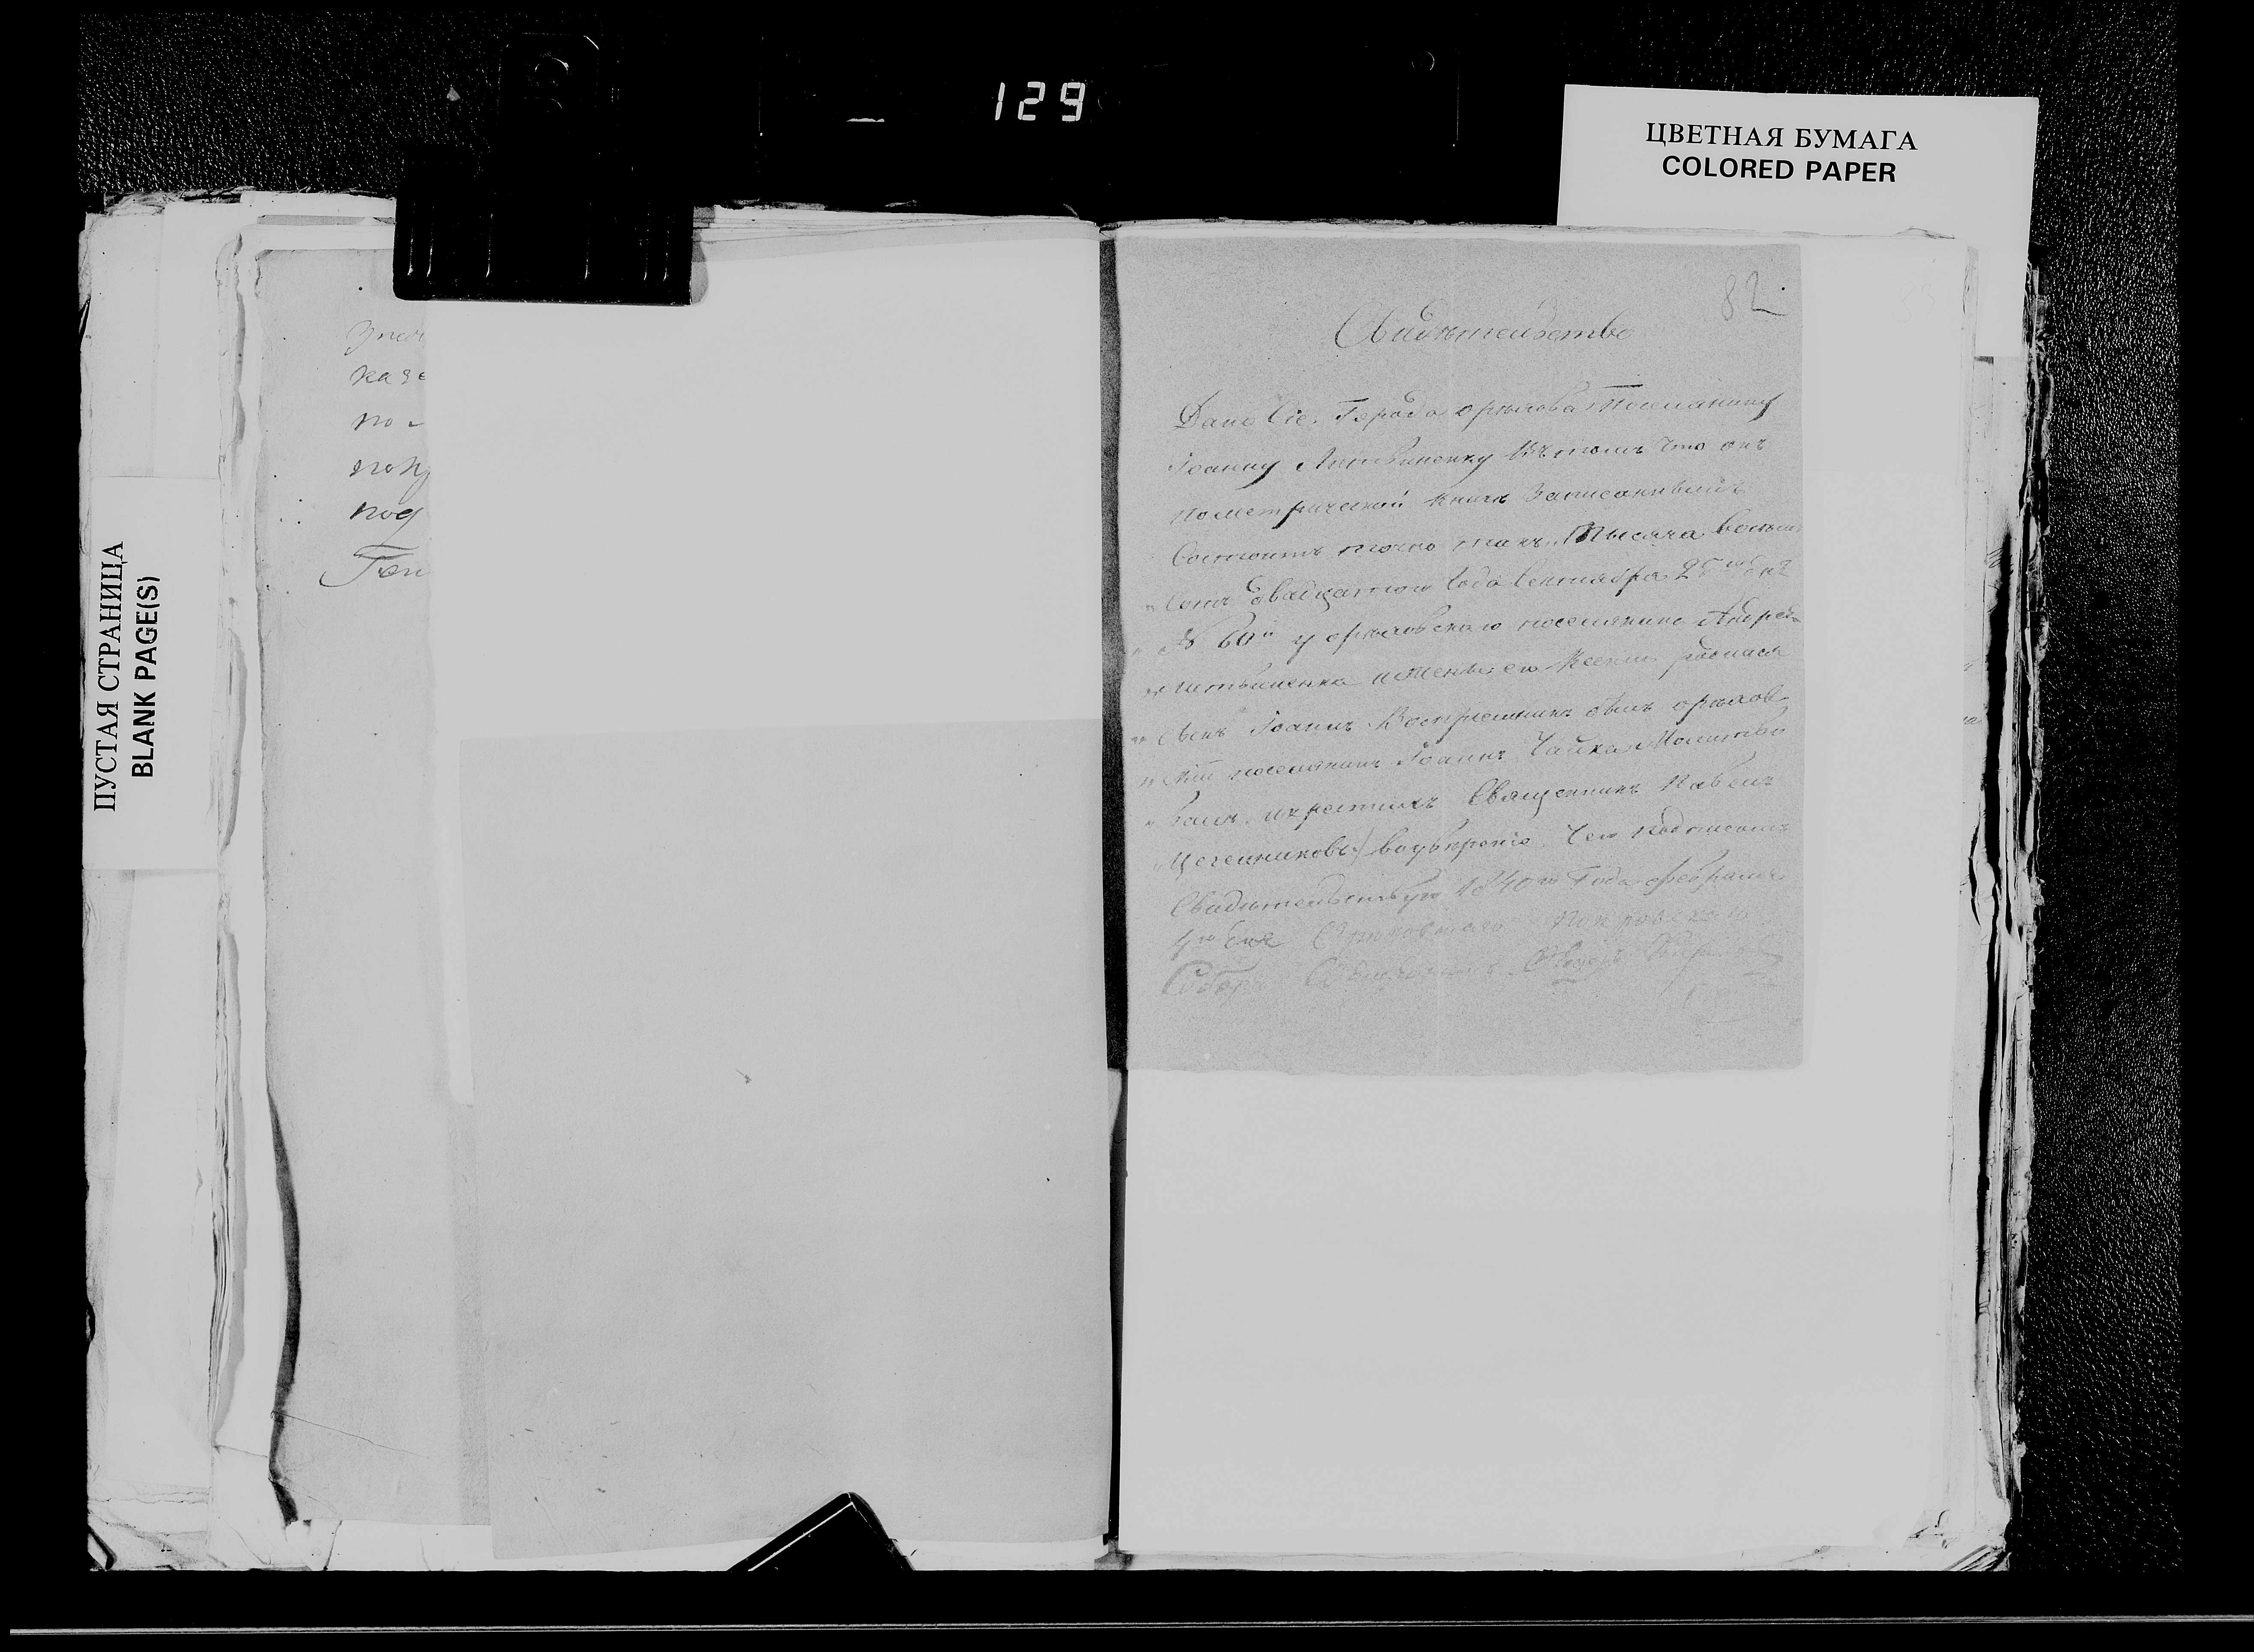 129
ЦВЕТНАЯ БУМАГА
COLORED PAPER
ПУСТАЯ СТРАНИЦА
BLANK PAGE(S)
казе
по
под
82
Свидѣтельство
Дано сіе Города Орѣхова Поселянину
Іоанну Литвиненку въ томъ что онъ
по метрической книгѣ записаннымъ
Состоитъ точно такъ. Тысяча восемь
" сотъ двадцатого года Сентября 25го дня
" № 60й у орѣховскаго поселянина Андрея
" Литвиненка и жены его Ксеніи родился
" сынъ Іоаннъ Воспріемникъ былъ орѣхов-
" скій поселянинъ Іоаннъ Чайка Молитво
" валъ и крестилъ Священникъ Павелъ
во увѣреніе чего подписомъ
Свидѣтельствую 1840го Года февраля
4го дня Орѣховскаго Покровскаго
Собора Священникъ